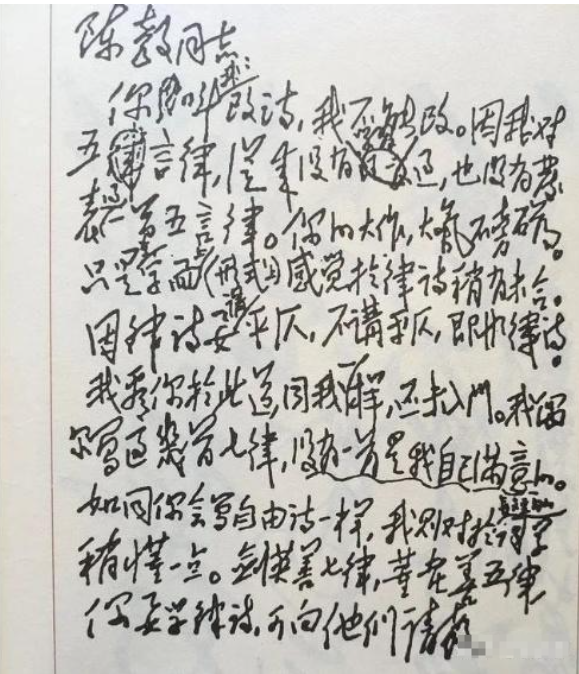 陈毅同志：
你叫我改诗，我不能改。因我对
五言律，从来没有学习过，也没有发
表过一首五言律。你的大作，大气磅礴。
只是在字面上（形式上）感觉于律诗稍有未合。
因律诗要讲平仄，不讲平仄，即非律诗。
我看你于此道，同我一样，还未入门。我偶
尔写过几首七律，没有一首是我自己满意的。
如同你会写自由诗一样，我则对于长短句的词学
稍懂一点。剑英善七律，董老善五律，
你要学律诗，可向他们请教